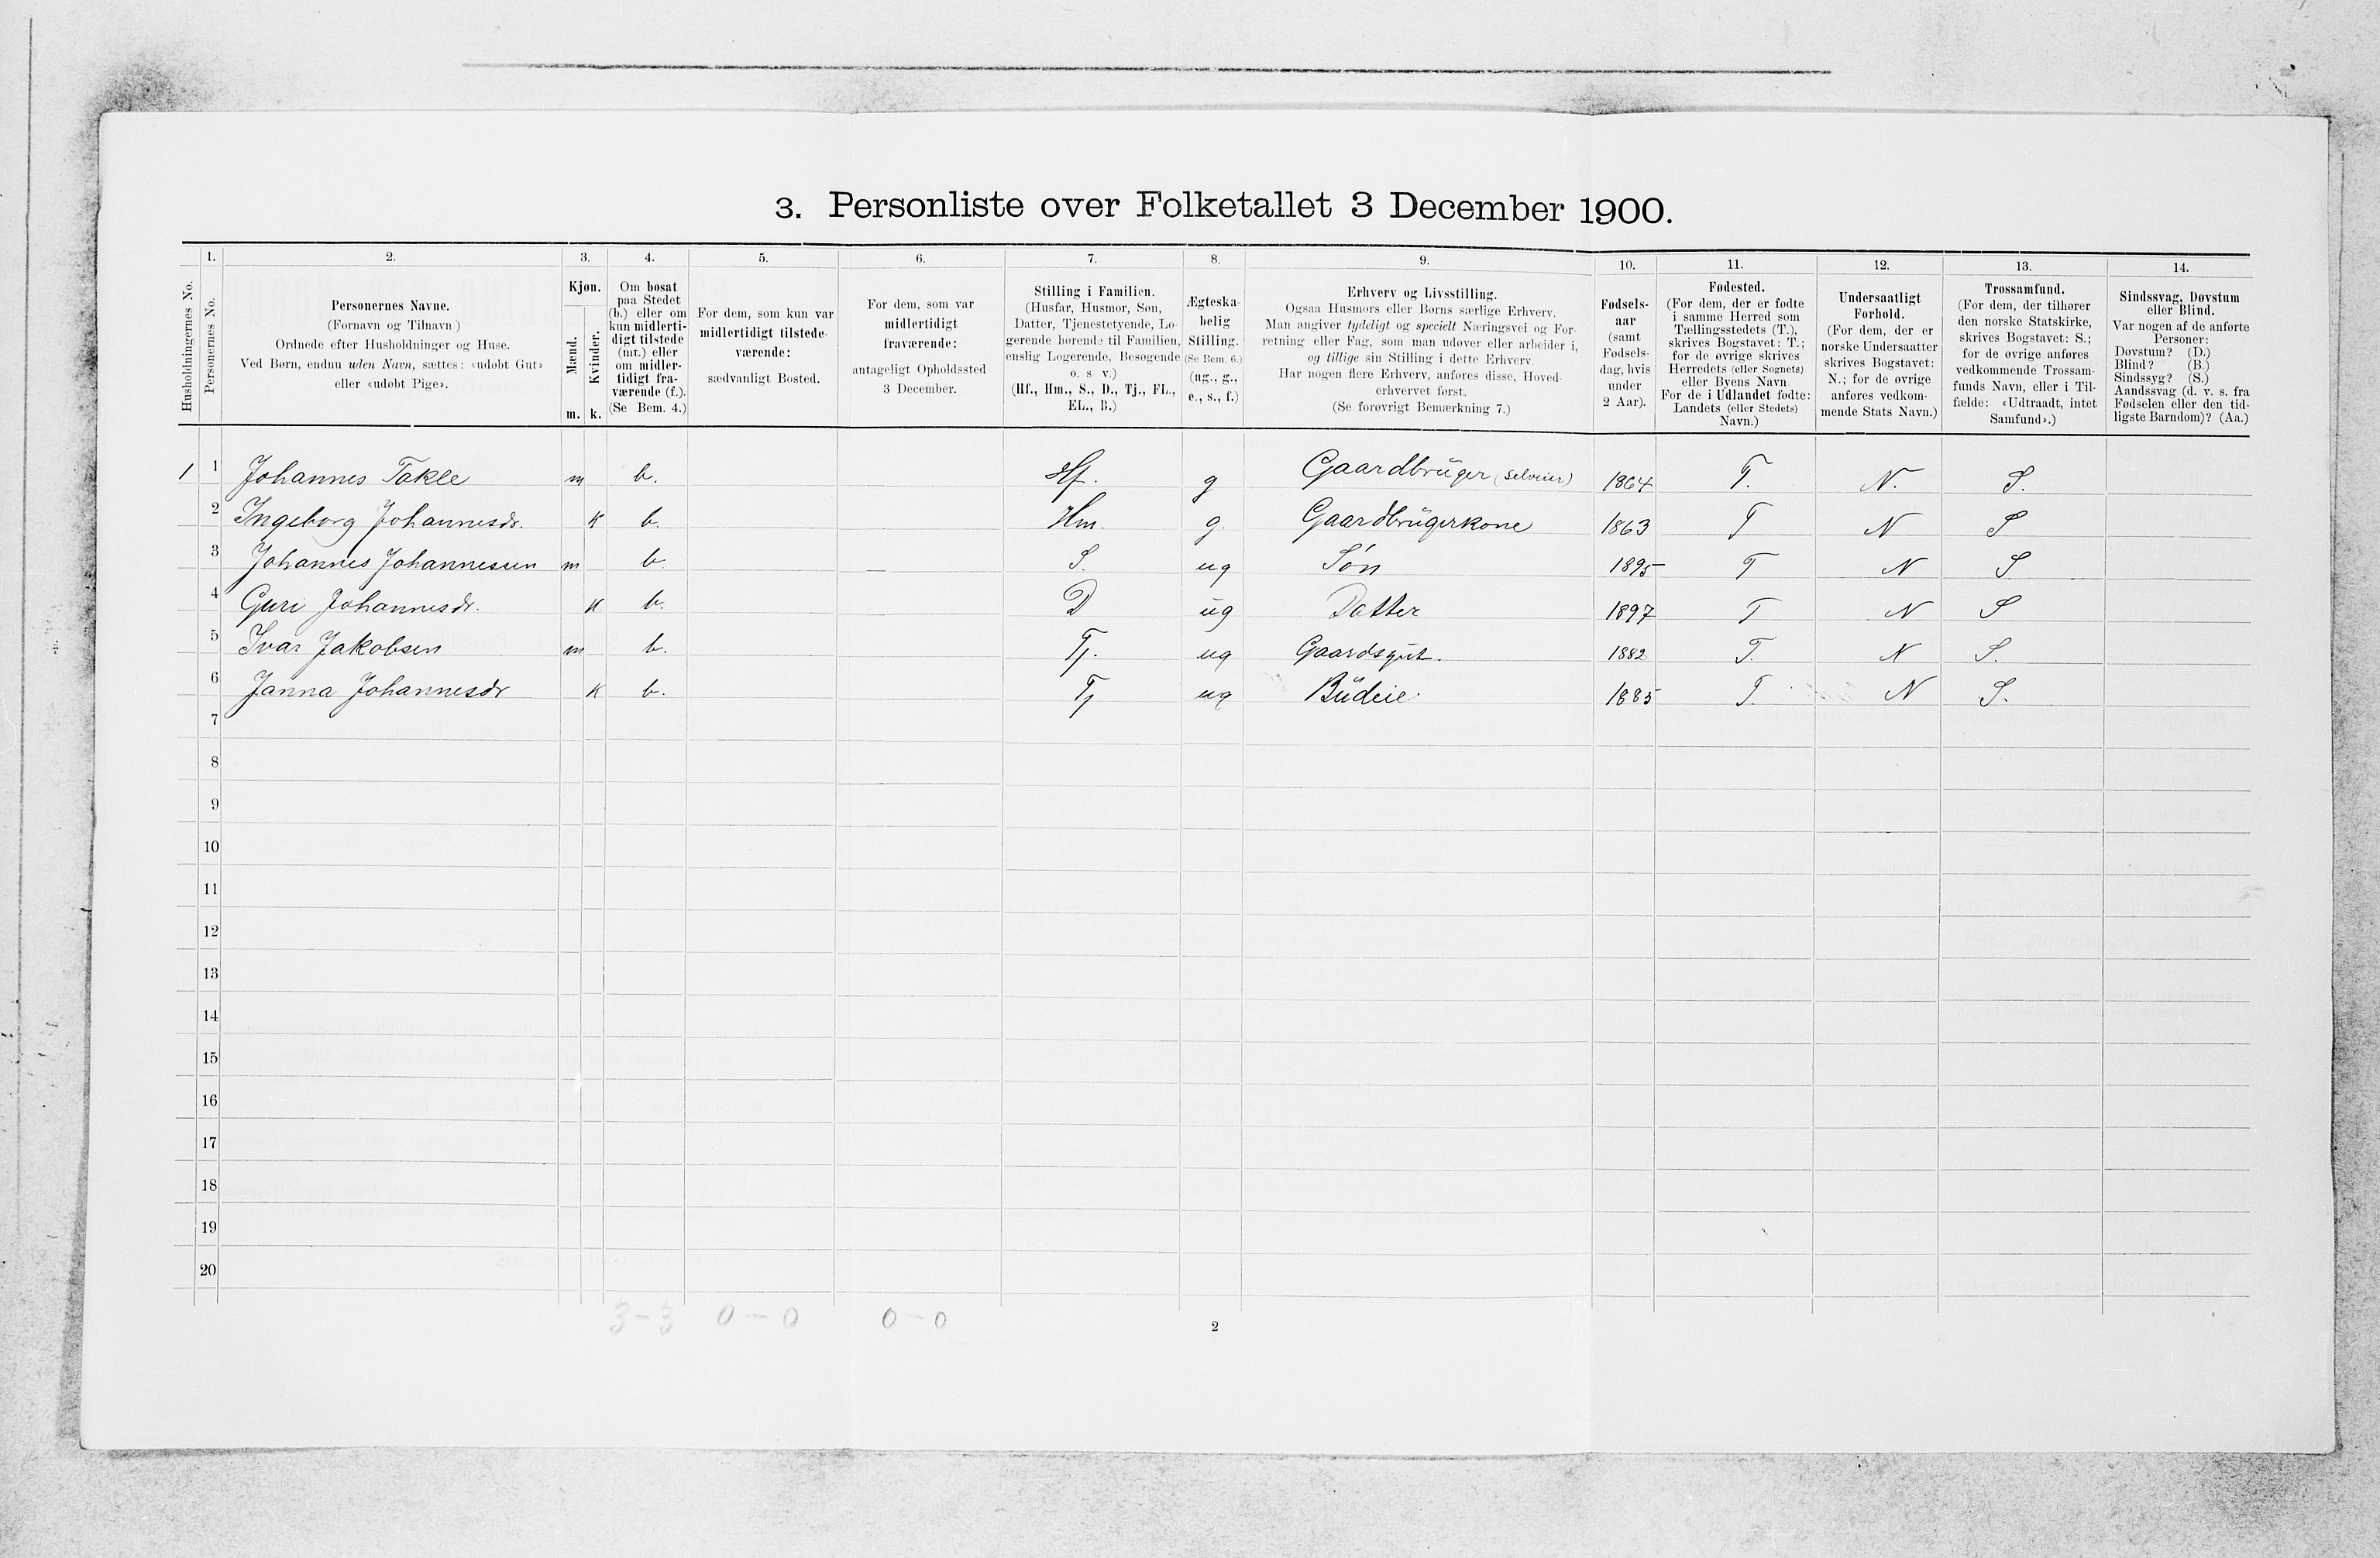 3. Personliste over Folketallet 3 December 1900.
1. 2. 3. 4. 5. 6. 7. 8. 9. 10. 11. 12. 13. 14.
Husholdningernes No.
Personernes No.
Personernes Navne.
(Fornavn og Tilnavn)
Ordnede efter Husholdninger og Huse.
Ved Børn, endnu uden Navn, sættes: «udøbt Gut»
eller «udøbt Pige».
Kjøn.
Mænd.
Kvinder.
m. k.
Om bosat
paa Stedet
(b.) eller om
kun midlerti-
digt tilstede
(mt.) eller
om midler-
tidigt fra-
værende (f.).
(Se Bem. 4.)
For dem, som kun var
midlertidigt tilstede-
værende:
sædvanligt Bosted.
For dem, som var
midlertidigt
fraværende:
antageligt Opholdssted
3 December.
Stilling i Familien.
(Husfar, Husmor, Søn,
Datter, Tjenestetyende, Lo-
gerende hørende til Familien,
enslig Logerende, Besøgende
o. s v.)
(Hf., Hm., S., D., Tj., FL.,
EL., B.)
Ægteska-
belig
Stilling.
(Se Bem. 6.)
(ug., g.,
e., s., f.)
Erhverv og Livsstilling.
Ogsaa Husmors eller Børns særlige Erhverv.
Man angiver tydeligt og specielt Næringsvei og For-
retning eller Fag, som man udøver eller arbeider i,
og tillige sin Stilling i dette Erhverv.
Har nogen flere Erhverv, anføres disse, Hoved-
erhvervet først.
(Se forøvrigt Bemærkning 7.)
Fødsels-
aar
(samt
Fødsels-
dag, hvis
under
2 Aar).
Fødested.
(For dem, der er fødte
i samme Herred som
Tællingsstedets (T.),
skrives Bogstavet: T.;
for de øvrige skrives
Herredets (eller Sognets)
eller Byens Navn.
For de i Udlandet fødte:
Landets (eller Stedets)
Navn.)
Undersaatligt
Forhold.
(For dem, der er
norske Undersaatter
skrives Bogstavet:
N.; for de øvrige
anføres vedkom-
mende Stats Navn.)
Trossamfund.
(For dem, der tilhører
den norske Statskirke,
skrives Bogstavet: S.;
for de øvrige anføres
vedkommende Trossam-
funds Navn, eller i Til-
fælde: «Udtraadt, intet
Samfund».)
Sindssvag, Døvstum
eller Blind.
Var nogen af de anførte
Personer:
Døvstum? (D.)
Blind? (B.)
Sindssyg? (S.)
Aandssvag (d. v. s. fra
Fødselen eller den tid-
ligste Barndom)? (Aa.)
1 1 Johannes Takle m b. Hf. g Gaardbrüger (selveier) 1864 T. N. S.
2 Ingeborg Johannesdr. K b. Hm. g. Gaardbrügerkone 1863 T N S
3 Johannes Johannessen m b. S. ug Søn 1895 T N S
4 Guri Johannesdr. K b. D üg Datter 1897 T N S
5 Ivar Jakobsen m b. Tj. ug Gaardsgüt. 1882 T. N S.
6 Janna Johannesdr K b. Tj ug Büdeie 1885 T. N S.
7
8
9
10
11
12
13
14
15
16
17
18
19
20
3 - 3 0 - 0 0 - 0
2